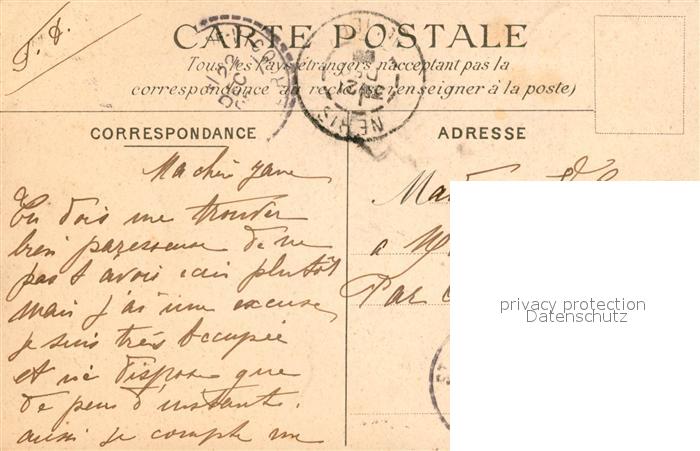 T. S.
CARTE POSTALE
Tous les pays étrangers n'acceptent pas la
correspondance au recto (se renseigner à la poste)
NERIS
CORRESPONDANCE
ADRESSE
Ma chère Jane
Tu dois me trouver
bien paresseuse de ne
pas t'avoir écris plutôt
mais j'ai une excuse,
je suis très occupée
et ne dispose que
de peu d'instants.
aussi je compte me
Mad
a
Par
privacy protection
Datenschutz